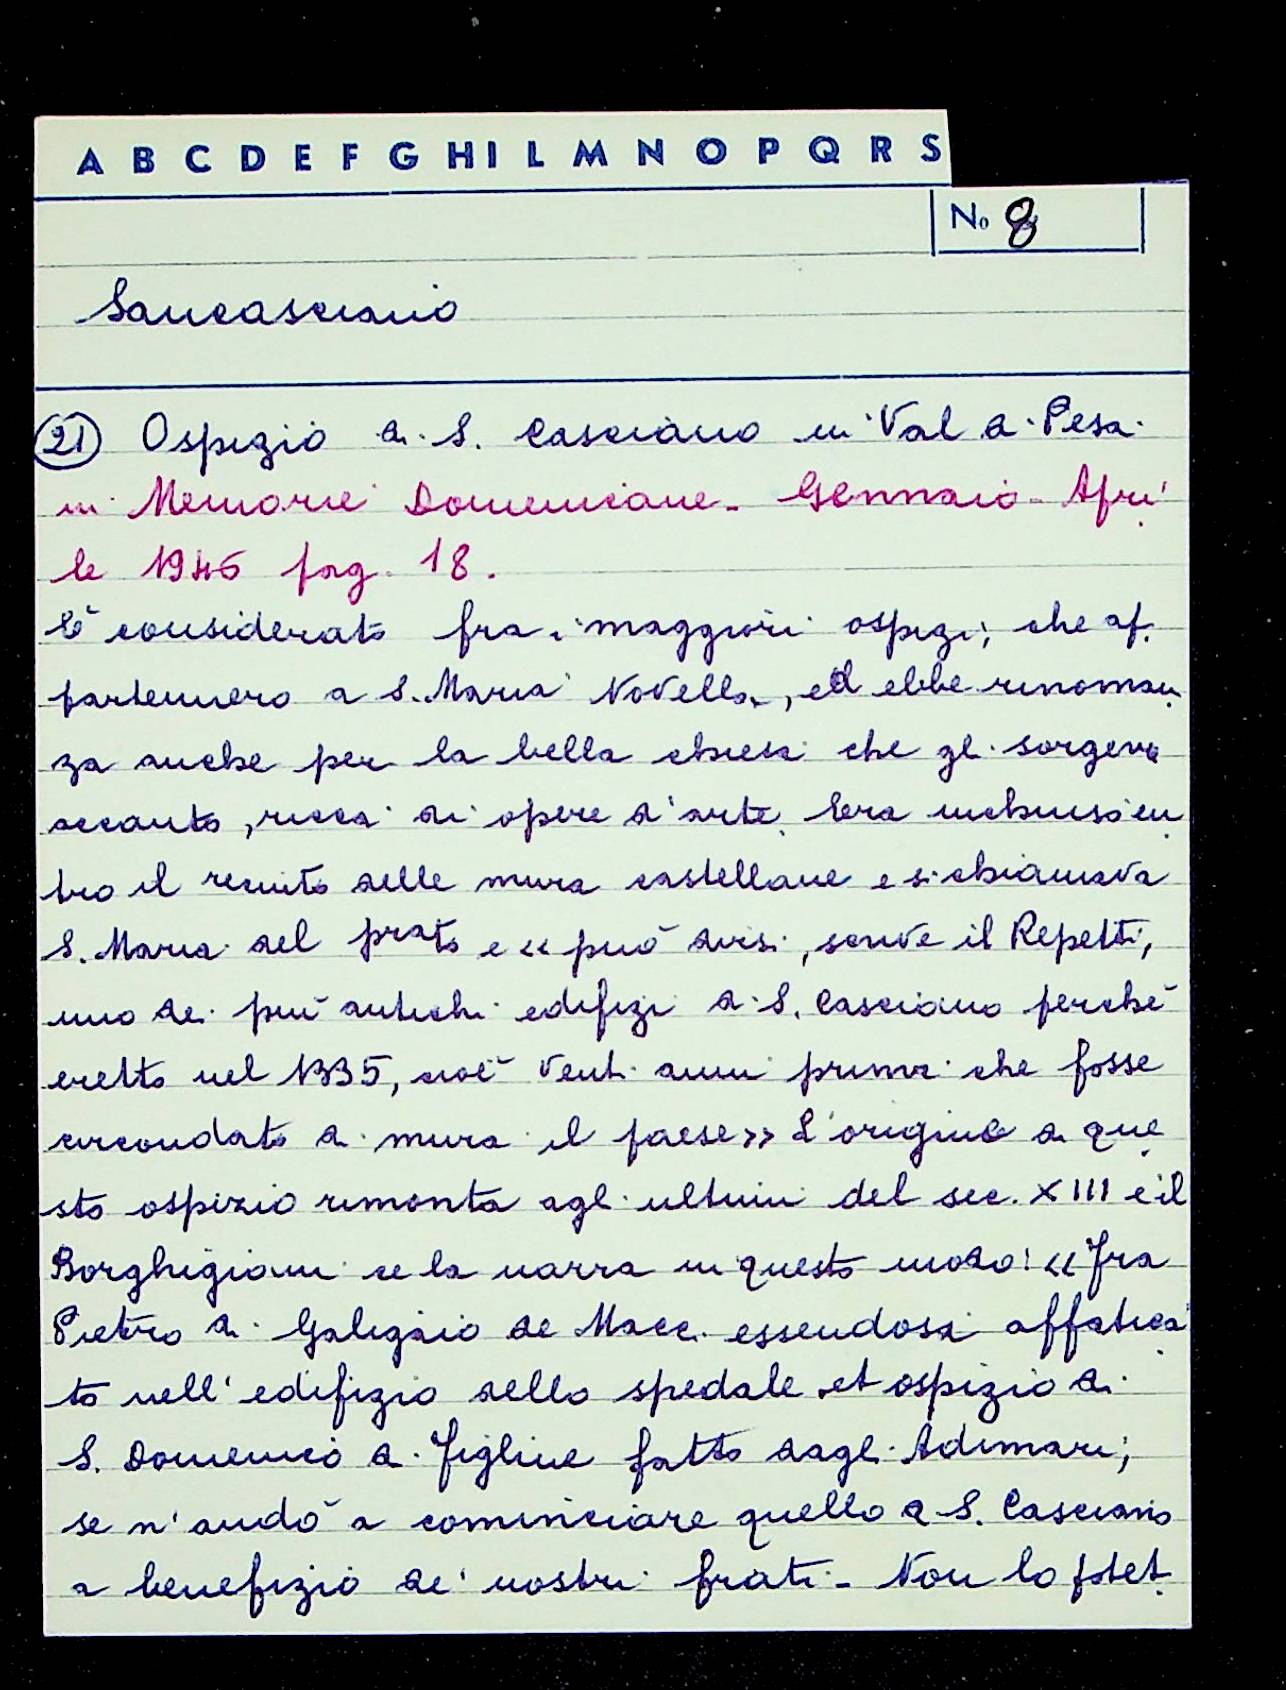 A B C D E F G H I L M N O P Q R S
No 8
Sancasciano
21 Ospizio di S. Casciano in Val di Pesa.
in Memorie Domenicane - Gennaio - Apri
le 1946 pag. 18.
È considerato fra i maggiori ospizi, che ap
partennero a S. Maria Novella, ed ebbe rinoman
za anche per la bella chiesa che gli sorgeva
accanto, ricca di opere d'arte. Era inchiuso en
tro il recinto delle mura castellane e si chiamava
S. Maria del prato e << può dirsi, scrive il Repetti,
uno dei più antichi edifizi di S. Casciano perchè
eretto nel 1335, cioè venti anni prima che fosse
circondato di mura il paese >> L'origine di que
sto ospizio rimonta agli ultimi del sec. XIII e il
Borghigiani ce la narra in questo modo: << Fra
Pietro di Galigaio de Macci essendosi affatica
to nell'edifizio dello spedale et ospizio di
S. Domenico di Figline fatto dagli Adimari,
se n'andò a cominciare quello di S. Casciano
a benefizio de' nostri frati - Non lo potet